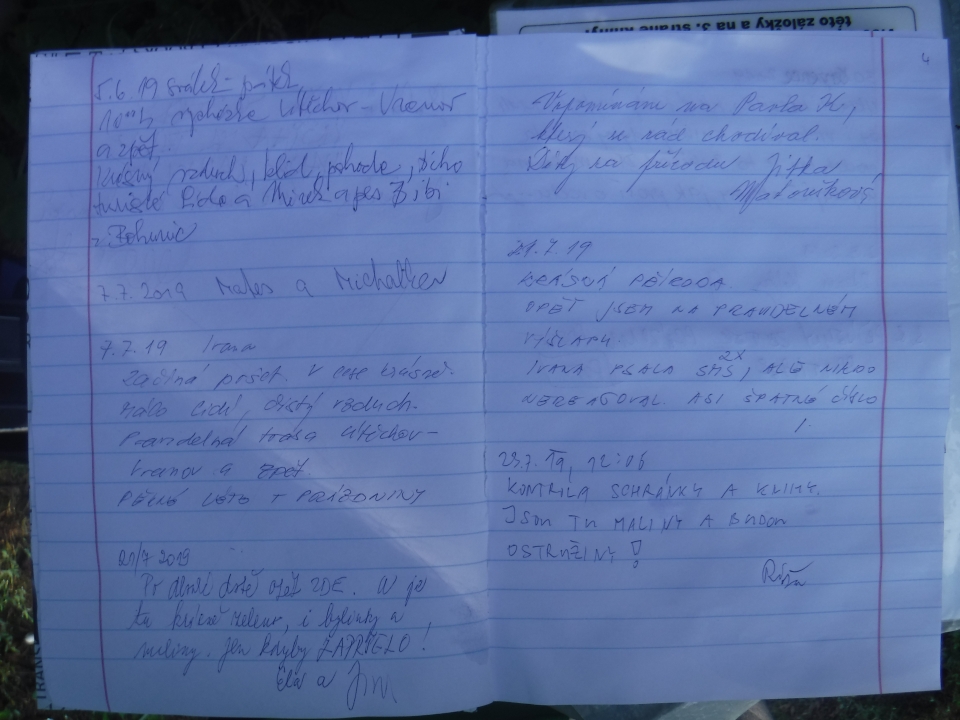 této záložky a na 3. straně knihy.
5.6 19 svátek - pátek
vycházka Útěchov - Vranov
a zpět.
Krásný vzduch, klid, pohoda, ticho
turisté Lida a Mirek a pes Bibi
z Bohunic
7.7.2019 a
7.7.19 Ivana
Začíná pršet. V lese krásně.
Málo lidí, čistý vzduch.
Pravidelná trasa Útěchov -
Vranov a zpět.
PĚKNÉ LÉTO + PRÁZDNINY
21/7 2019
Po dlouhé době opět ZDE. A je
tu krásně zeleno, i bylinky a
maliny. Jen kdyby ZAPRŠELO!
a
4
Vzpomínám na Pavla K,
který u rád chodíval.
Díky za přírodu Jitka
21.7.19
KRÁSNÁ PŘÍRODA.
OPĚT JSEM NA PRAVIDELNÉM
VÝŠLAPU.
IVANA PSALA SMS 2X, ALE NIKDO
NEREAGOVAL. ASI ŠPATNÉ ČÍSLO
I.
23.7.19, 12:06
KONTROLA SCHRÁNKY A KNIHY.
JSOU TU MALINY A BUDOU
OSTRUŽINY!